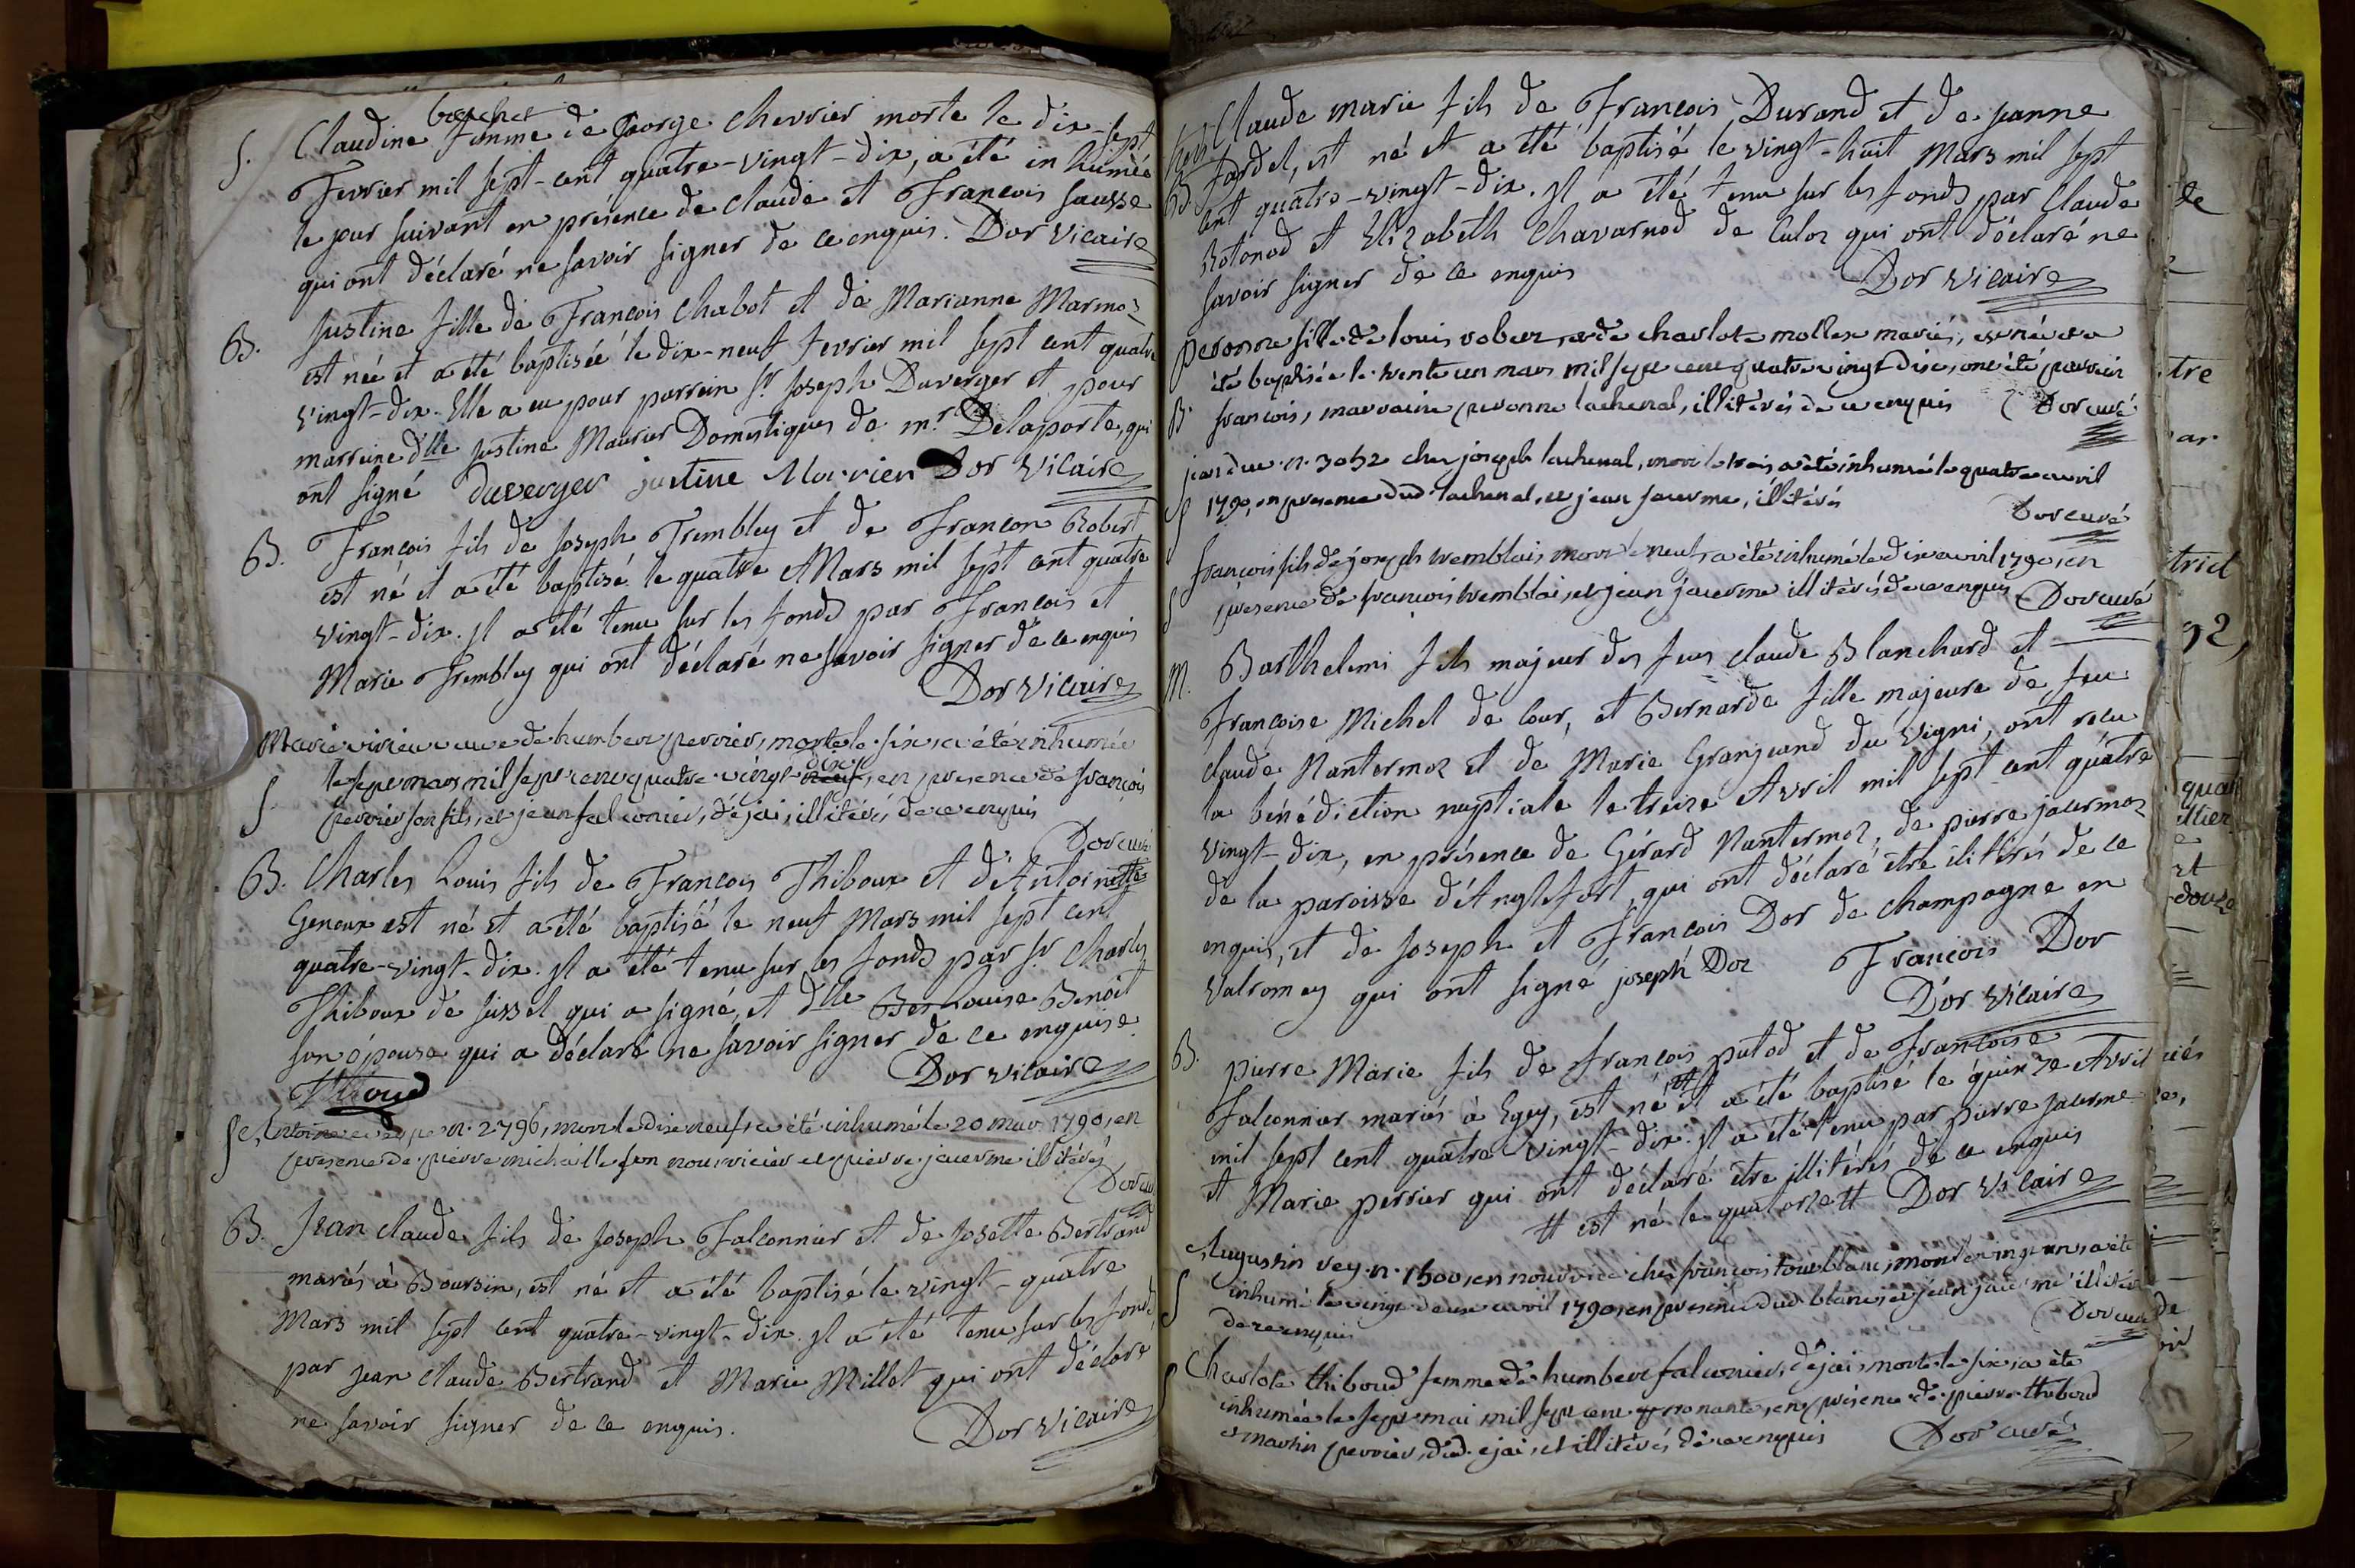 brachet
S. Claudine femme de George Chevrier morte le dix-sept
Fevrier mil sept-cent quatre-vingt-dix, a été inhumée
le jour suivant en presence de Claude et Francois Jausse
qui ont déclaré ne savoir signer de ce enquis. Dor Vicaire
B. Justine fille de Francois Chabot et de Marianne Marmoz
est née et a été baptisée le dix-neuf fevrier mil sept cent quatre
vingt-dix. Elle a eu pour parrein Sr. Joseph Duverger et pour
marreine dlle Justine Maurier Domestiques de mr. Delaporte, qui
ont signé Duverger justine Mourier Dor Vicaire
B. Francois fils de Joseph Trembley et de Francon Robert
est né et a été baptisé le quatre Mars mil sept cent quatre
vingt-dix. Il a été tenu sur les fonds par Francois et
Marie Trembley qui ont déclaré ne savoir signer de ce enquis
Dor Vicaire
Marie vivieu veuve de humbert perrier, morte le six, a été inhumée
dix
S le sept mars mil sept cent quatre-vingt-neuf, en presence de françois
perrier son fils, et jean falconier, déjai, illitérés de ce enquis
Dor curé
B. Charles Louis fils de Francois Thiboux et d'Antoinette
Genoux est né et a été baptisé le neuf Mars mil sept cent
quatre-vingt-dix. Il a été tenu sur les fonds par Sr Charles
Thiboux de Sissel qui a signé, et dlle Ber Louise Benoit
son épouse qui a déclaré ne savoir signer de ce enquise.
Dor Vicaire
S Antoine n. 2796, mort le dix neuf, a été inhumé le 20 mars 1790, en
presence de pierre michaille son nourricier et pierre jacerme illitérés
Dor curé
B. Jean Claude fils de Joseph Falconnier et de Josette Bertrand
mariés à Boursin, est né et a été baptisé le vingt-quatre
Mars mil sept cent quatre-vingt-dix. Il a été tenu sur les fonds
par Jean Claude Bertrand et Marie Millet qui ont déclaré
ne savoir signer de ce enquis. Dor Vicaire
Claude Marie fils de Francois Durand et de Jeanne
B Fardel, est né et a été baptisé le vingt-huit Mars mil sept
cent quatre-vingt-dix. Il a été tenu sur les fonds par Claude
Rotonod et Elizabeth Chavarnod de Culoz qui ont déclaré ne
savoir signer de ce enquis Dor Vicaire
peronne fille de louis rober, et de charlote mollex mariés, est née et a
été baptisée le trente un mars mil sept cent quatre vingt dix, ont été parrein
B françois, marraine peronne lachenal, illitérés de ce enquis Dor curé
jean n. 3052 chez joseph lachenal, mort le trois a été inhumé le quatre avril
S 1790, en presence dud. lachenal, et jean jacerme, illitérés
Dor curé
françois fils de joseph tremblai, mort le neuf, a été inhumé le dix avril 1790, en
S presence de françois tremblai, et jean jacerme illitérés de ce enquis Dor curé
M. Barthelemi fils majeur des feus Claude Blanchard et
Francoise Michel de Cour, et Bernarde fille majeure de feu
Claude Nantermoz et de Marie Granjeand du Vigni, ont recu
la bénédiction nuptiale le treize Avril mil sept cent quatre
vingt-dix, en présence de Gérard Nantermoz, de pierre jacermoz
de la paroisse d'Anglefort, qui ont déclaré être ilitérés de ce
enquis, et de Joseph et Francois Dor de Champagne en
Valromey qui ont signé joseph Dor François Dor
Dor Vicaire
B. Pierre Marie fils de Francois putod et de Francoise
Falconnier mariés à Egey, est né tt et a été baptisé le quinze Avril
mil sept cent quatre vingt-dix. Il a été tenu par pierre jacerme
et Marie perrier qui ont déclaré être illitérés de ce enquis
tt est né le quatorze tt Dor Vicaire
Augustin vey n. 1500, en nourrice chez françois blanc, mort le vingt un, a été
S inhumé le vingt deux avril 1790, en presence dud. blanc, et jean jacerme illitérés
de ce enquis Dor curé
S Charlote thiboud femme de humbert falconier, déjai, morte le six, a été
inhumée le sept mai mil sept cent nonante, en présence de pierre thiboud
et martin perrier, dud. ejai, et illitérés de ce enquis Dor curé
de
tre
ar
trict
92,
quat
et
douze
de